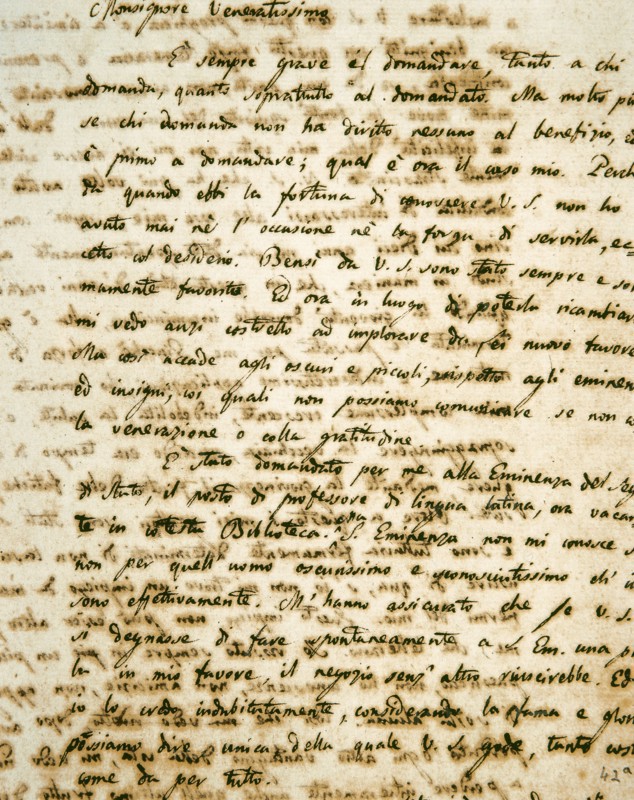 Monsignore Veneratissimo
È sempre grave il domandare, tanto a chi
domanda, quanto sopratutto al domandato. Ma molto più
se chi domanda non ha diritto nessuno al benefizio, ed
è primo a domandare; qual è ora il caso mio. Perch
da quando ebbi la fortuna di conoscere V. S. non ho
avuto mai nè l'occasione nè la forza di servirla, ec=
cetto col desiderio. Bensì da V. S. sono stato sempre e som
mamente favorito. Ed ora in luogo di poterla ricambiar
mi vedo anzi costretto ad implorare da lei nuovo favore
Ma così accade agli oscuri e piccoli, rispetto agli eminen
ed insigni, coi quali non possiamo comunicare se non c
la venerazione o colla gratitudine
È stato domandato per me alla Eminenza del Seg
di Stato, il posto di professore di lingua latina, ora vacan
te in cotesta Biblioteca. S. Eminenza non mi conosce s
non per quell'uomo oscurissimo e sconosciutissimo ch'i
sono effettivamente. M'hanno assicurato che se V. S.
si degnasse di fare spontaneamente a S. Em. una p
la in mio favore, il negozio senz'altro riuscirebbe. Ed
io lo credo indubitatamente, considerando la fama e glor
possiamo dire unica della quale V. S. gode, tanto cost
come da per tutto.
42a